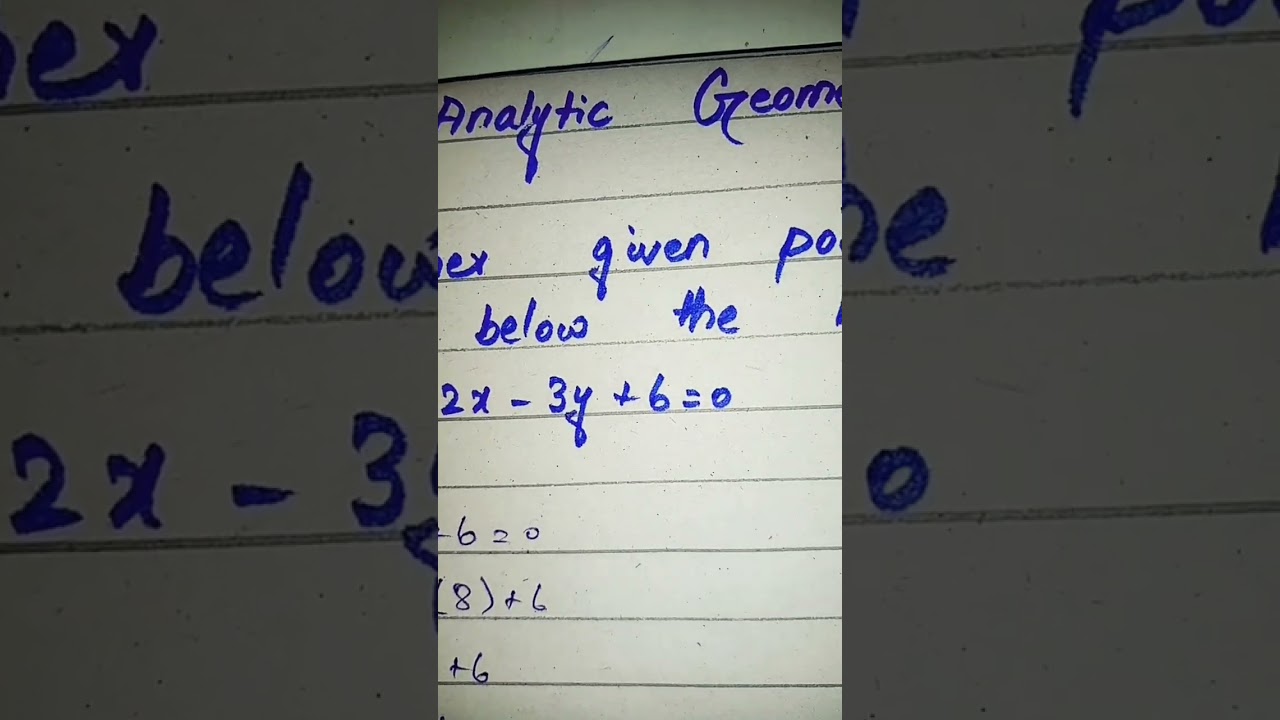 Analytic Geome
given po
below the
2x - 3y + 6 = 0
-6 = 0
(8) + 6
+6